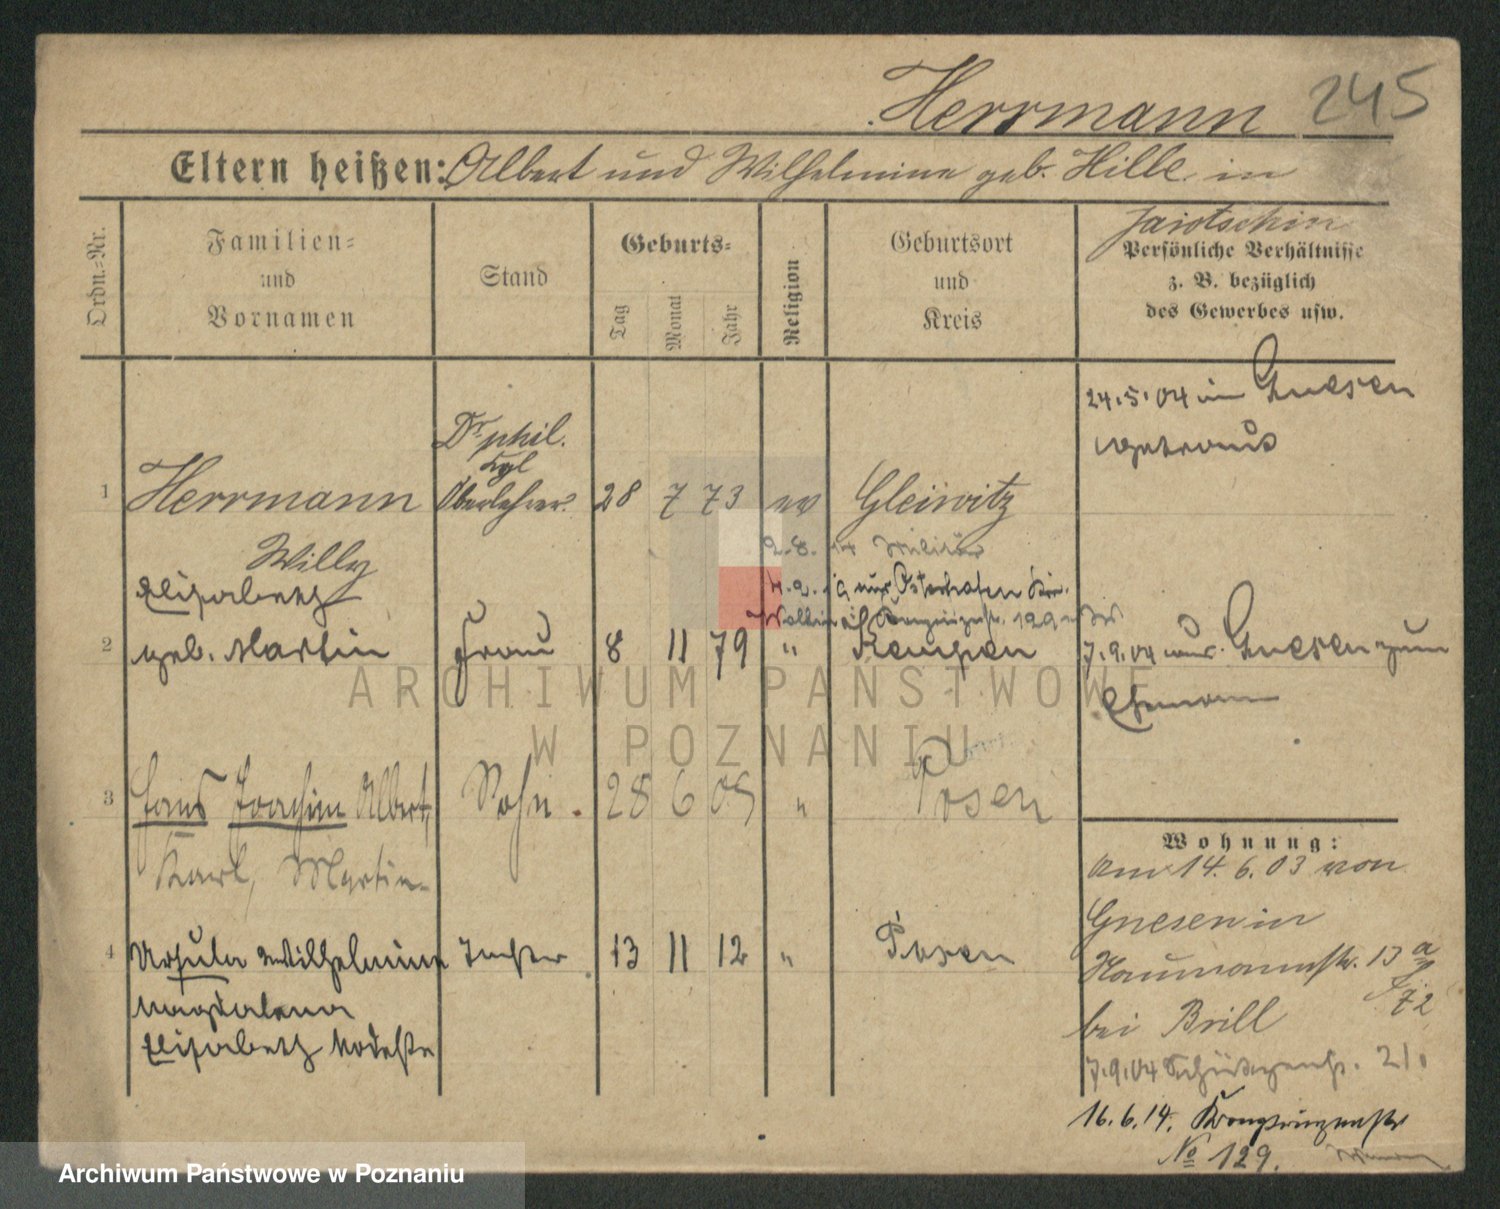 Herrmann 245
Eltern heißen: Albert und Wilhelmine geb. Hille in
Jarotschin
Ordn.=Nr.
Familien=
und
Vornamen
Stand
Geburts=
Tag
Monat
Jahr
Religion
Geburtsort
und
Kreis
Persönliche Verhältnisse
z. B. bezüglich
des Gewerbes usw.
24.5.04 in Gnesen
getraut
Dr phil.
Kgl
1 Herrmann Oberlehrer 28 7 73 ev Gleiwitz
Willy
2.8.14 Militär
Elisabeth
2 geb. Martin Frau 8 11 79 " Kempen
7.9.04 aus Gnesen zum
Ehemann
3 Hans Joachim Albert, Sohn 28 6 05 " Posen
Karl, Martin
4 Ursula Wilhelmine Tochter 13 11 12 " Posen
Magdalena
Elisabeth Modesta
Wohnung:
Am 14.6.03 von
Gnesen in
Naumannstr. 13
bei Brill
7.9.04 21.
16.6.14. Kronprinzenstr
No 129.
ARCHIWUM PAŃSTWOWE
W POZNANIU
Archiwum Państwowe w Poznaniu